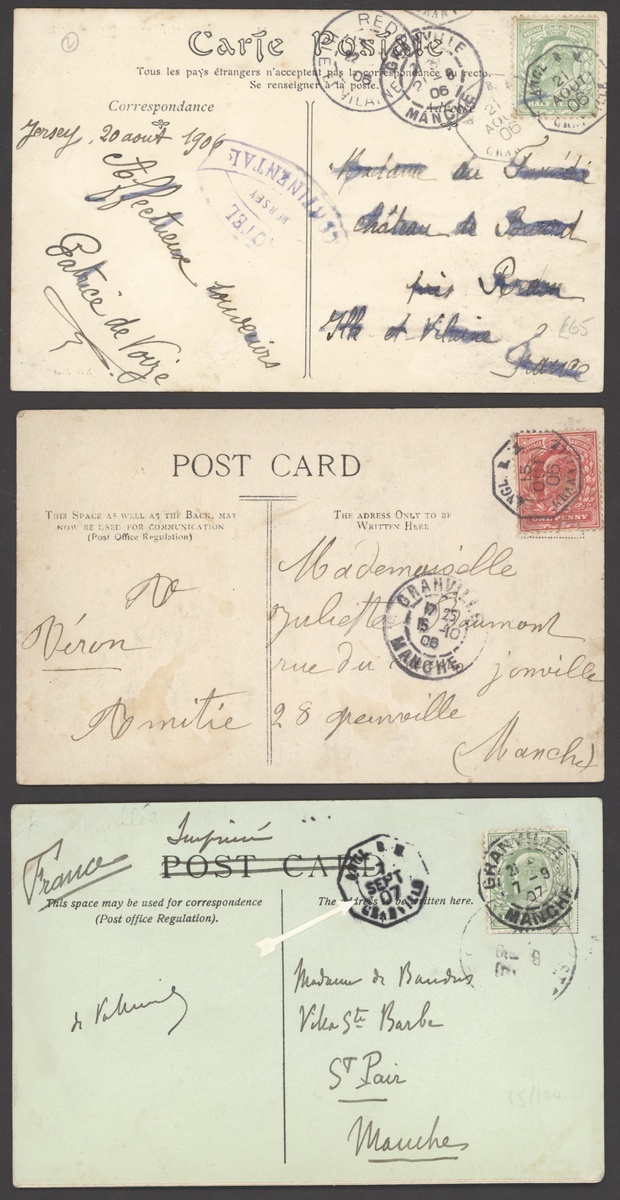 2
Carte Postale
Tous les pays étrangers n'acceptent pas la correspondance au recto.
Se renseigner à la poste.
REDON
22
06
ILLE & VILAINE
GRANVILLE
21
06
MANCHE
ANGL. B. M.
21
AOUT
06
GRANVILLE
HALF PENNY
Correspondance
Adresse
Jersey, 20 aout 1906
HOTEL CONTINENTAL
JERSEY
Affectueux souvenirs
Patrice de Voize
Madame du
Château de
près Redon
Ille et Vilaine
France
£65
POST CARD
THIS SPACE AS WELL AS THE BACK, MAY
NOW BE USED FOR COMMUNICATION
(Post Office Regulation)
THE ADRESS ONLY TO BE
WRITTEN HERE
ANGL. B. M.
15
06
GRANVILLE
ONE PENNY
GRANVILLE
17 25
15-10
06
MANCHE
Véron
Amitié
Mademoiselle
Juliette
rue du jonville
28 granville
(Manche)
France
Imprimé
POST CARD
This space may be used for correspondence
(Post office Regulation).
The address to be written here.
ANGL. B. M.
7
SEPT
07
GRANVILLE
GRANVILLE
21
7-9
07
MANCHE
Madame de Baudus
Villa Ste Barbe
St Pair
Manche
15/104